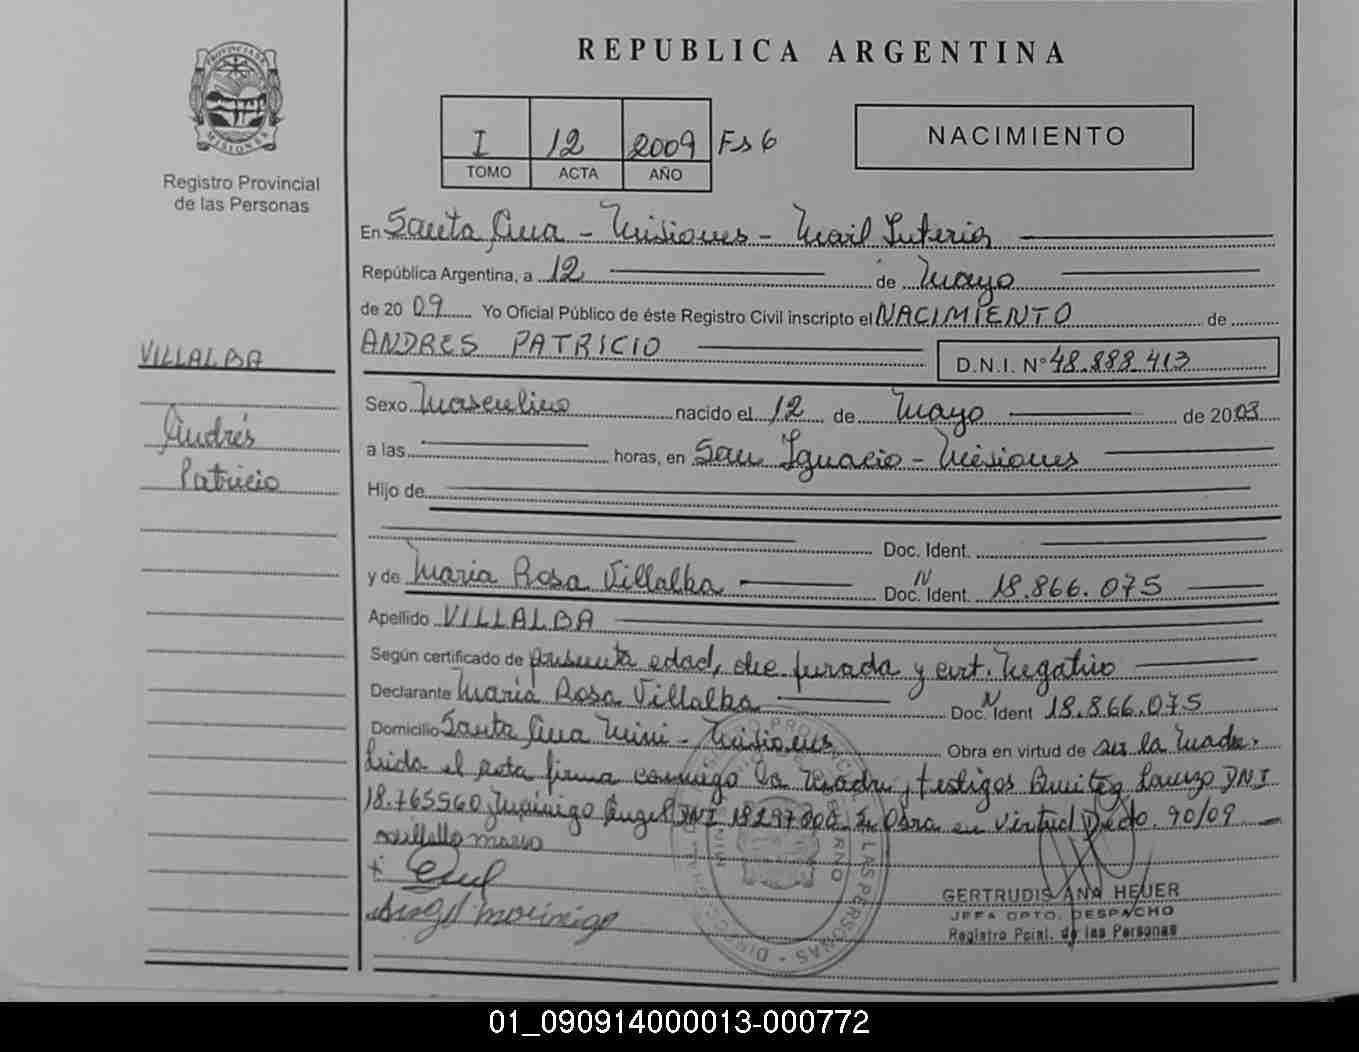 REPUBLICA ARGENTINA
PROVINCIA DE
MISIONES
Registro Provincial
de las Personas
I 12 2009 Fs 6
TOMO ACTA AÑO
NACIMIENTO
En Santa Ana - Misiones - Mail Interior
República Argentina, a 12 de Mayo
de 20 09 Yo Oficial Público de éste Registro Civil inscripto el NACIMIENTO de
ANDRES PATRICIO
D.N.I. Nº 48.888.413
VILLALBA
Andrés
Patricio
Sexo Masculino nacido el 12 de Mayo de 2003
a las horas, en San Ignacio - Misiones
Hijo de
Doc. Ident.
y de Maria Rosa Villalba Doc. N Ident. 18.866.075
Apellido VILLALBA
Según certificado de presunta edad, dec jurada y cert. Negativo
Declarante Maria Rosa Villalba Doc. N Ident 18.866.075
Domicilio Santa Ana Mini - Misiones Obra en virtud de ser la Madre.
Leida el acta firma conmigo la Madre, testigos Benitez Lorenzo DNI
18.765560 Angel DNI Obra en Virtud Dcto. 90/09
villalba maria
GERTRUDIS ANA HEUER
JEFA DPTO. DESPACHO
Registro Pcial. de las Personas
01_090914000013-000772